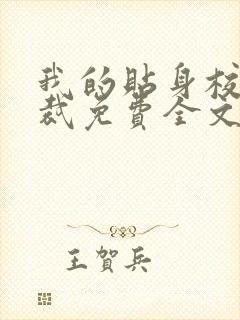 我的贴身校
裁免費全文
王賀兵